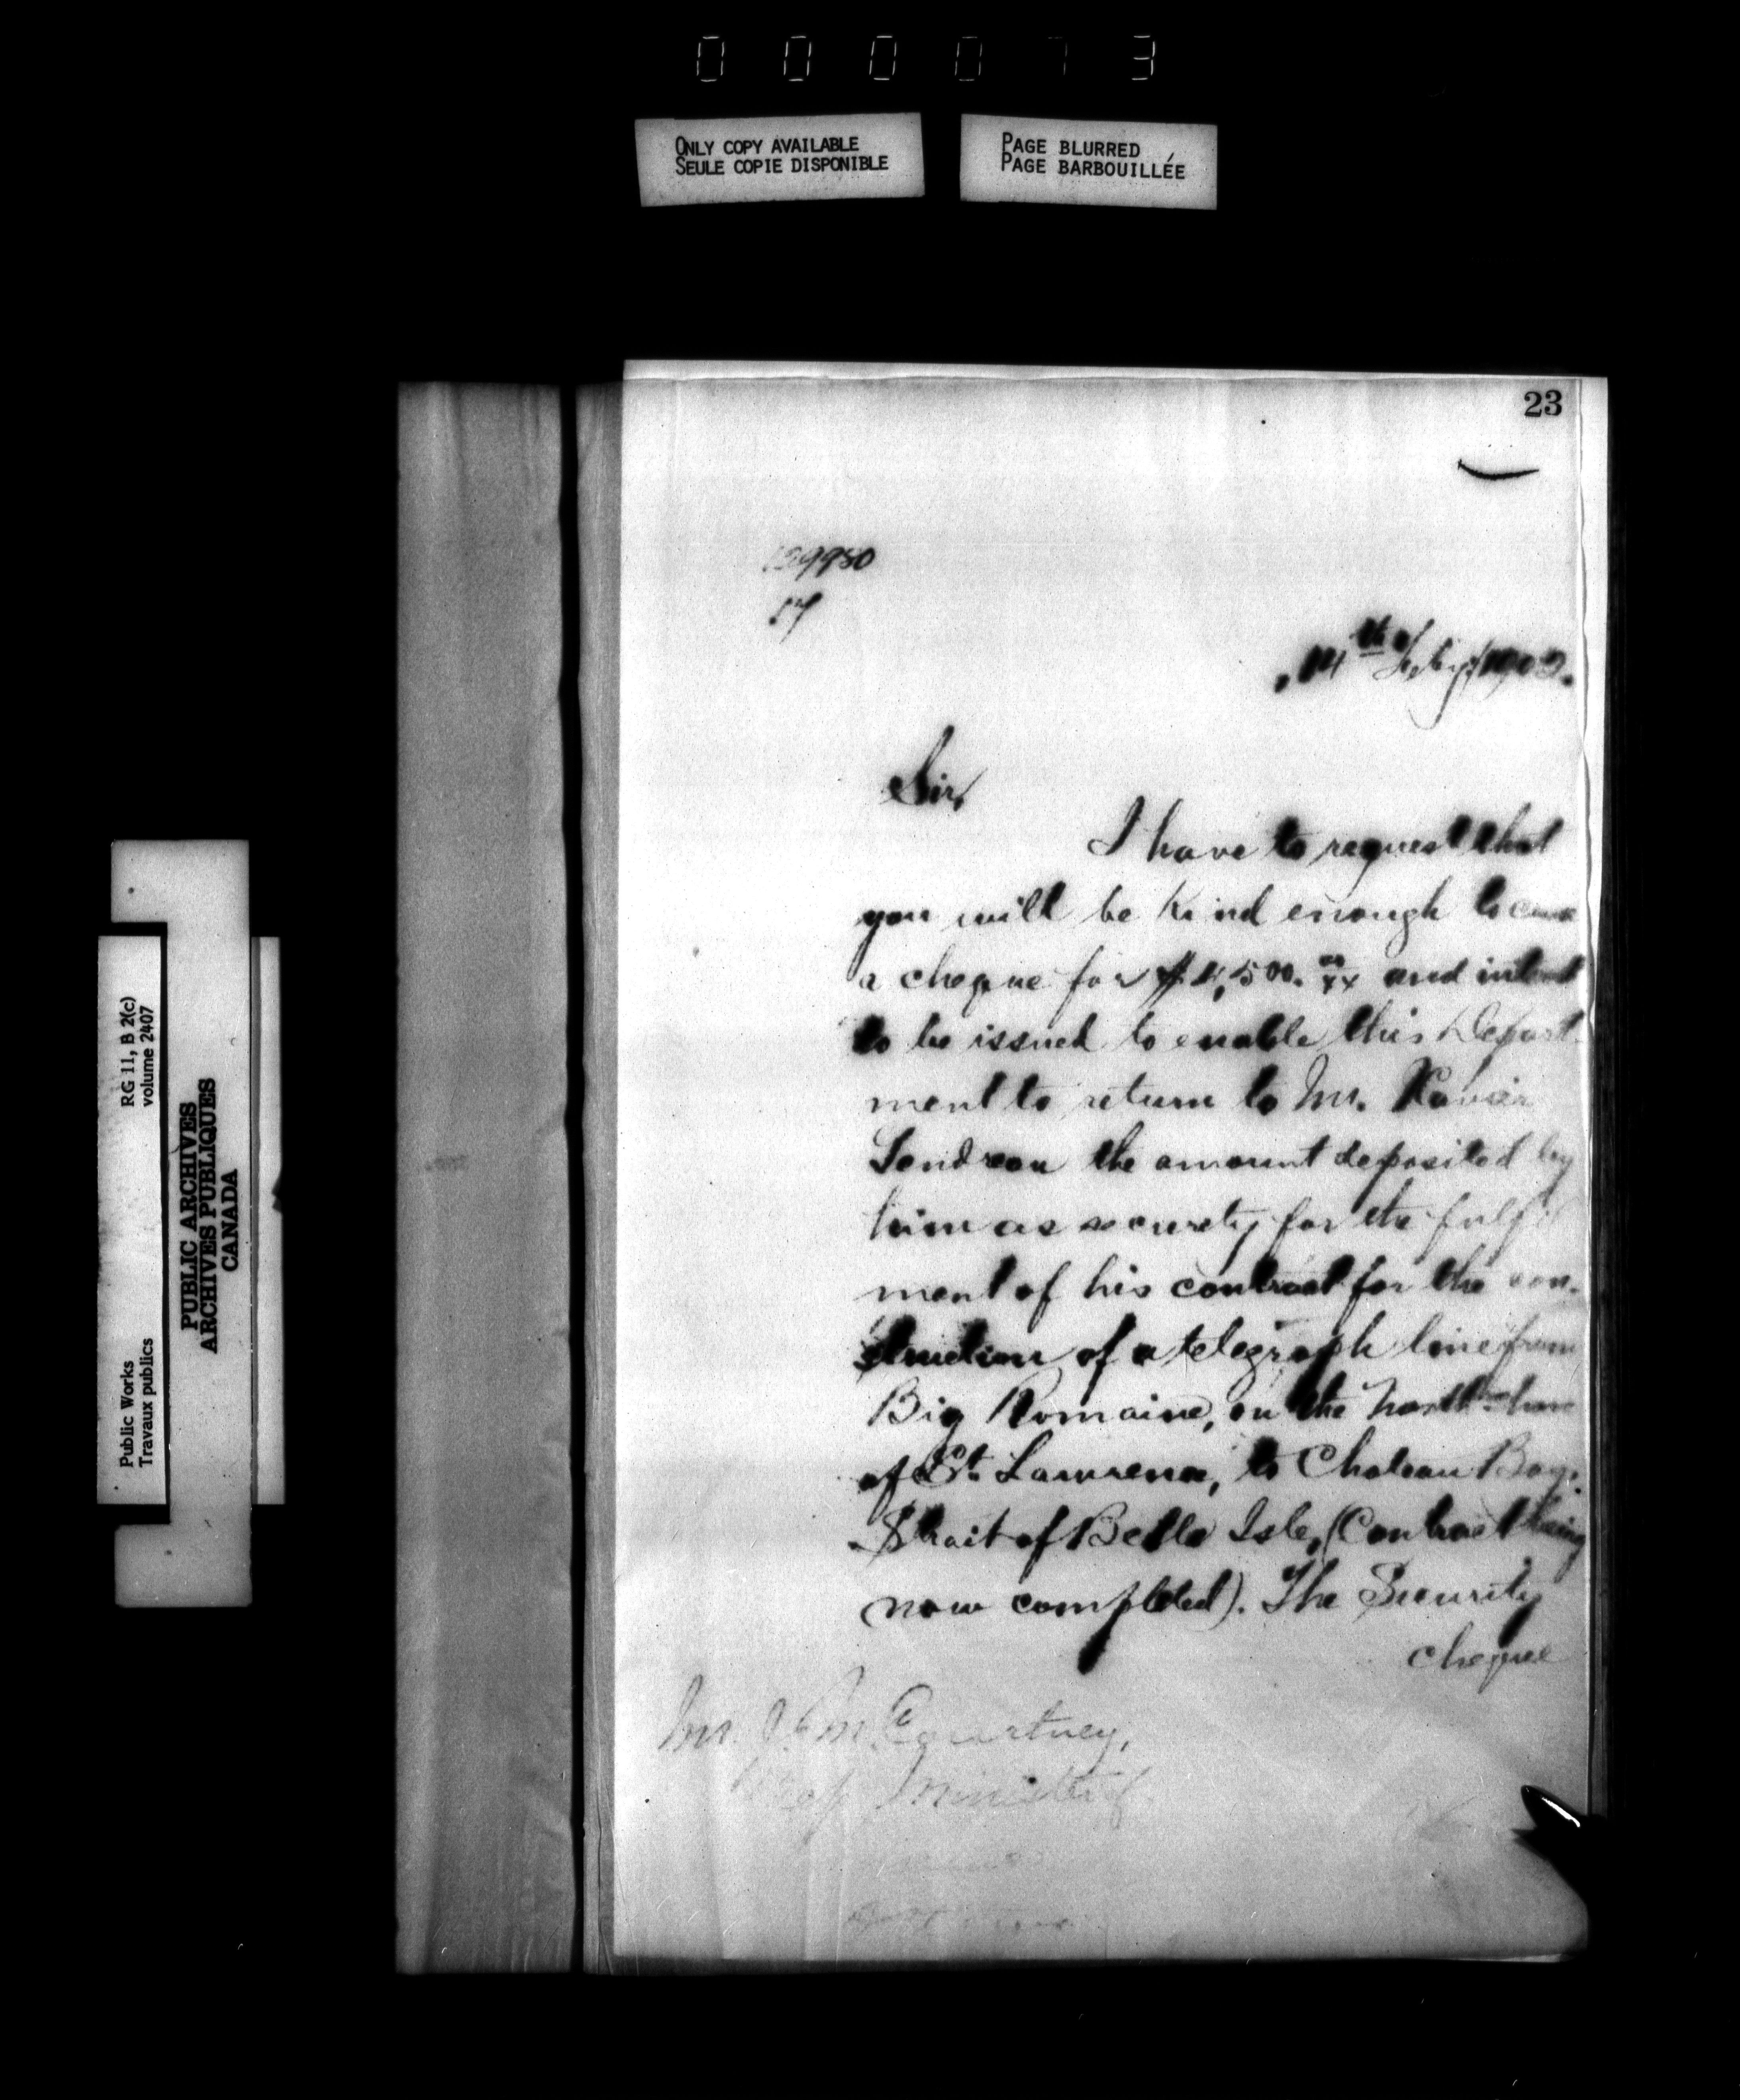 0 0 0 0 7 3
ONLY COPY AVAILABLE
SEULE COPIE DISPONIBLE
PAGE BLURRED
PAGE BARBOUILLÉE
23
139980
14th 1902.
Sir,
I have to request that
you will be kind enough to cause
a cheque for 500. 00/xx and interest
to be issued to enable this Depart-
ment to return to Mr. Xavier
the amount deposited by
him as security for the fulfil
ment of his contract for the con-
struction of a telegraph line from
Big Romaine, on the North shore
of St. Lawrence, to Chateau Bay,
Strait of Belle Isle, (Contract being
now completed). The Security
cheque
Mr. J. M. Courtney,
Minister of
RG 11, B 2(c)
volume 2407
Public Works
Travaux publics
PUBLIC ARCHIVES
ARCHIVES PUBLIQUES
CANADA